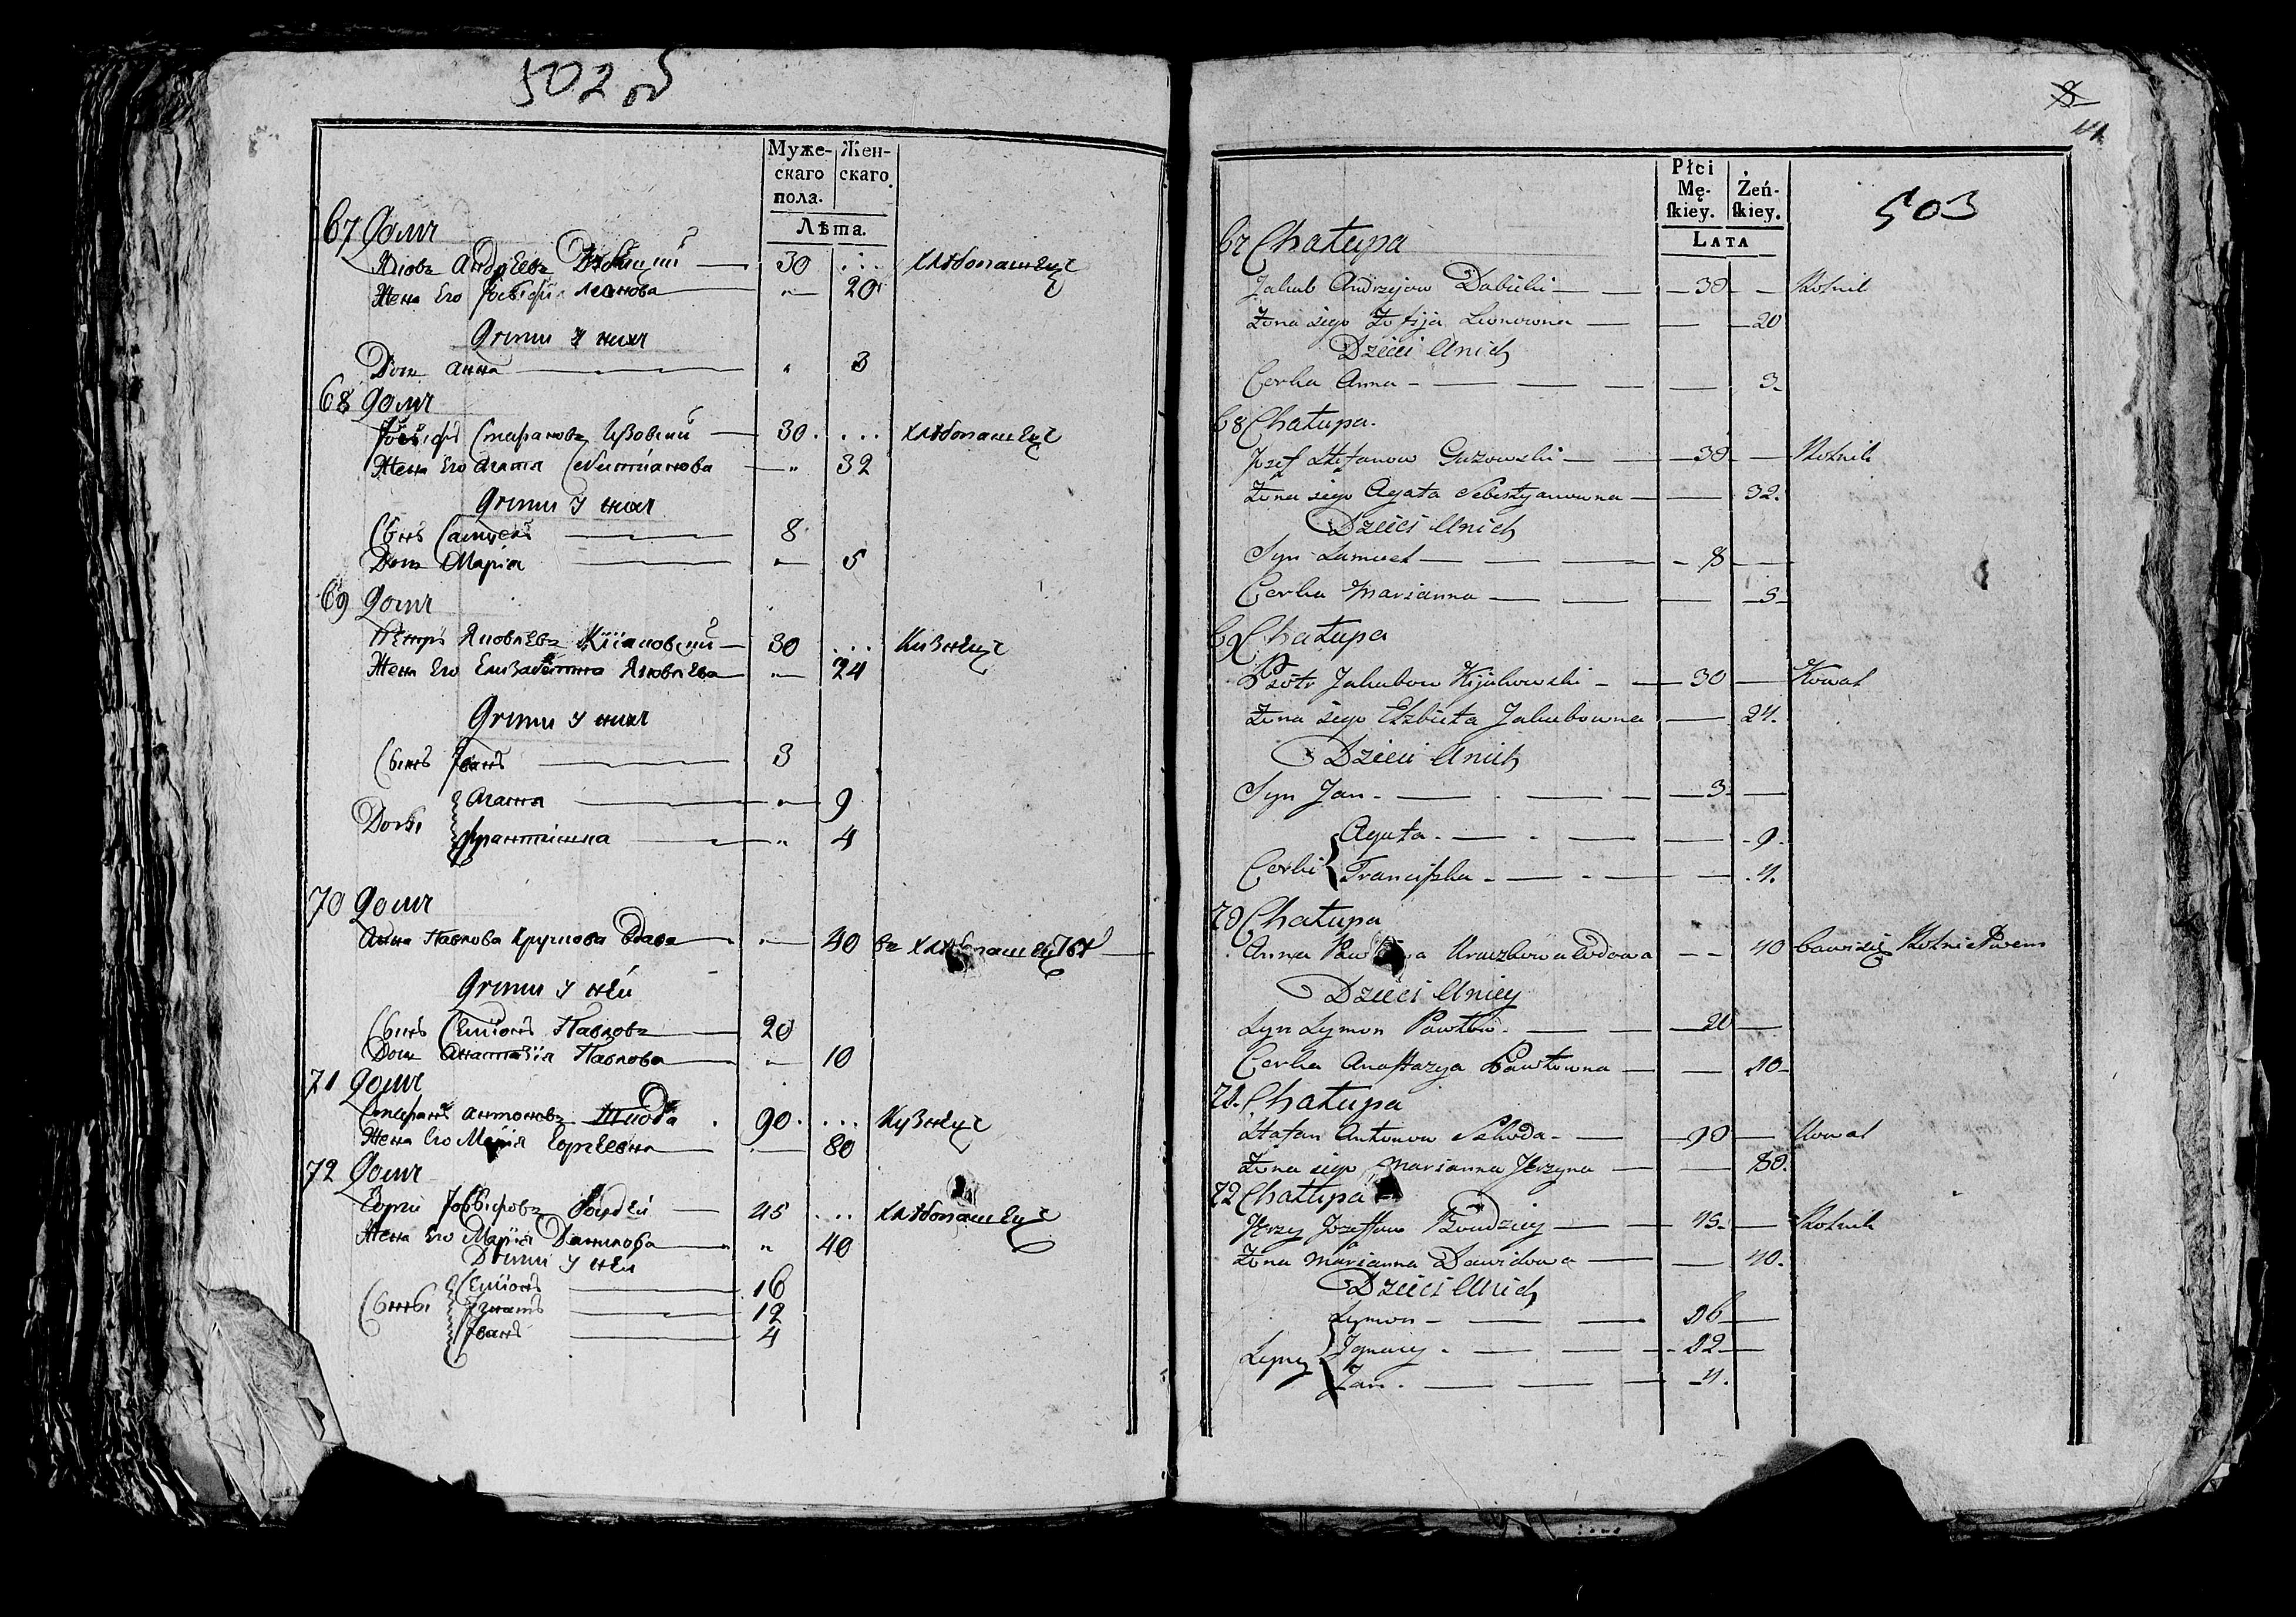 502 об
Муже-
скаго
пола.
Жен-
скаго.
Лѣта.
67 Домъ
Яковъ Андрѣевъ 30 ... хлѣбопашецъ
Жена Его 20
Дѣти у нихъ
Дочь Анна 3
68 Домъ
Іосифъ Стефановъ Гузовскій 30 ... хлѣбопашецъ
Жена Его Агата 32
Дѣти у нихъ
Сынъ Самуель 8
Дочь Марія 5
69 Домъ
Петръ Яковлевъ 30 ... Кузнецъ
Жена Его Елизабетта Яковлева 24
Дѣти у нихъ
Сынъ Іванъ 3
Дочьки
Агата 9
Франтишка 4
70 Домъ
Анна Павлова вдова 40 въ
Дѣти у нѣй
Сынъ Семіонъ Павловъ 20
Дочь Павлова 10
71 Домъ
Стефанъ Антоновъ Шкода 90 ... Кузнецъ
Жена Его Марія 80
72 Домъ
Іосифовъ 45 ... хлѣбопашецъ
Жена Его Марія 40
Дѣти у
Сыны
Семіонъ 16
Игнатъ 12
Іванъ 4
8
11
503
Płci
Mę-
ſkiey.
Żeń-
ſkiey.
LATA
67 Chałupa
Jakub Andrzejow Dabicki 30 Rolnik
Żona iego Zofija Leonowna 20
Dzieci u nich
Corka Anna 3
68 Chałupa
Jozef Stefanow Guzowski 30 Rolnik
Żona iego Agata Sebestyanowna 32
Dzieci u nich
Syn Samuel 8
Corka Marianna 5
69 Chałupa
Piotr Jakubow Kijakowski 30 Kowal
Żona iego Elzbieta Jakubowna 24
Dzieci u nich
Syn Jan 3
Corki
Agata 9
Franciſzka 4
70 Chałupa
Anna wdowa 40
Dzieci u niey
Syn Symon Pawłow 20
Corka Anaſtazya Pawłowna 10
71. Chałupa
Stefan Antonow Szkoda 90 Kowal
Żona iego Marianna Jerzyna 80
72 Chałupa
Jerzy Jozefow 45 Rolnik
Żona Marianna Dawidowa 40
Dzieci u nich
Syny
Symon 16
Jgnacy 12
Jan 4